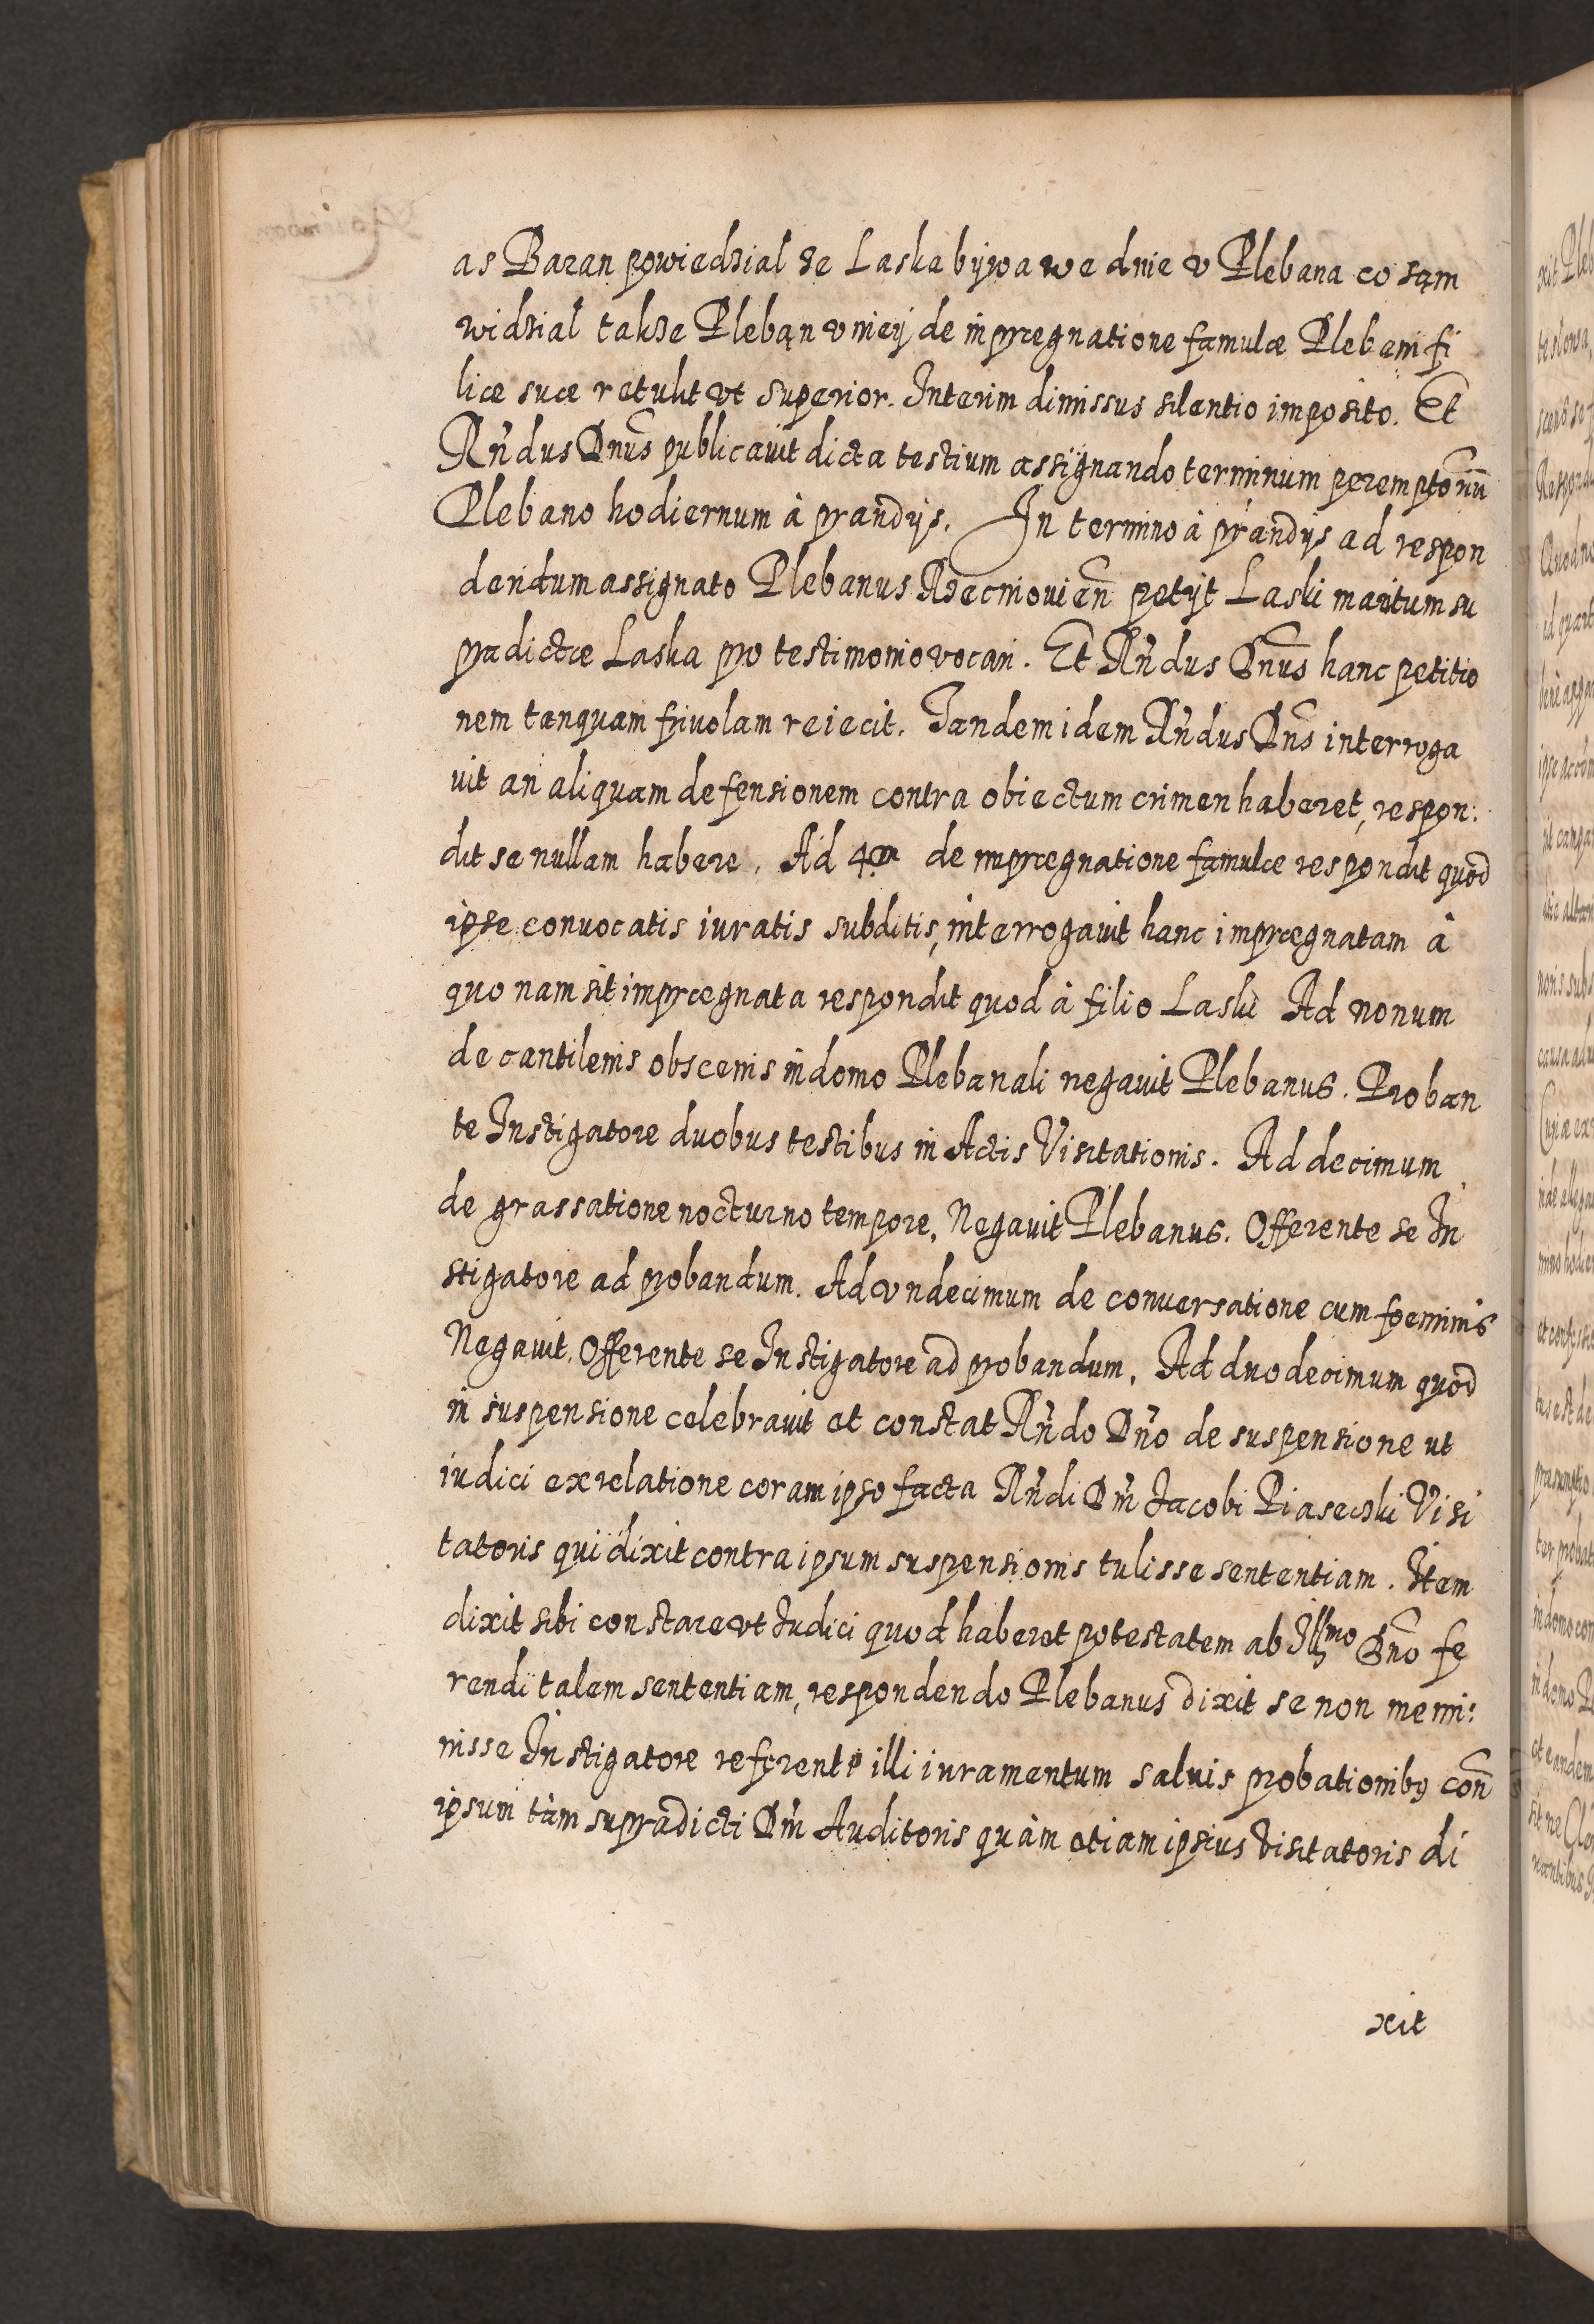 as Baran powiedzial ze Laska bywa we dnie v Plebana co sąm
widzial takze Plebąn v niey de inprægnatione famulæ Plebani fi
liæ suæ retulit vt superior. Interim dimissus silentio imposito. Et
Rńdus Dnūs publicauit dicta testium assignando terminum peremptoriū
Plebano hodiernum à prandijs. In termino à prandijs ad respon
dendum assignato Plebanus Rzecniouień petijt Laski maritum su
pradictæ Laska pro testimonio vocari. Et Rńdus Dnūs hanc petitio
nem tanquam friuolam reiecit. Tandem idem Rńdus Dns interroga
uit an aliquam defensionem contra obiectum crimen haberet, respon:
dit se nullam habere. Ad 4m de imprægnatione famulæ respondit quod
ipse conuocatis iuratis subditis, interrogauit hanc imprægnatam à
quo nam sit imprægnata respondit quod à filio Laski Ad nonum
de cantilenis obscenis in domo Plebanali negauit Plebanus. Proban
te Instigatore duobus testibus in Actis Visitationis. Ad decimum
de grassatione nocturno tempore, Negauit Plebanus. Offerente se In
stigatore ad probandum. Ad vndecimum de conuersatione cum foeminis
Negauit. Offerente se Instigatore ad probandum. Ad duodecimum quod
in suspensione celebrauit et constat Rńdo Dńo de suspensione ut
iudici ex relatione coram ipso facta Rńdi Dńi Jacobi Piasecżki Visi
tatoris qui dixit contra ipsum suspensionis tulisse sententiam. Item
dixit sibi constare vt Iudici quod haberet potestatem ab Illmo Dnō fe
rendi talem sententiam, respondendo Plebanus dixit se non memi:
nisse Instigatore referente illi iuramentum saluis probationibꝰ con̄
ipsum tàm supradicti Dńi Auditoris quàm etiam ipsius Visitatoris di
xit